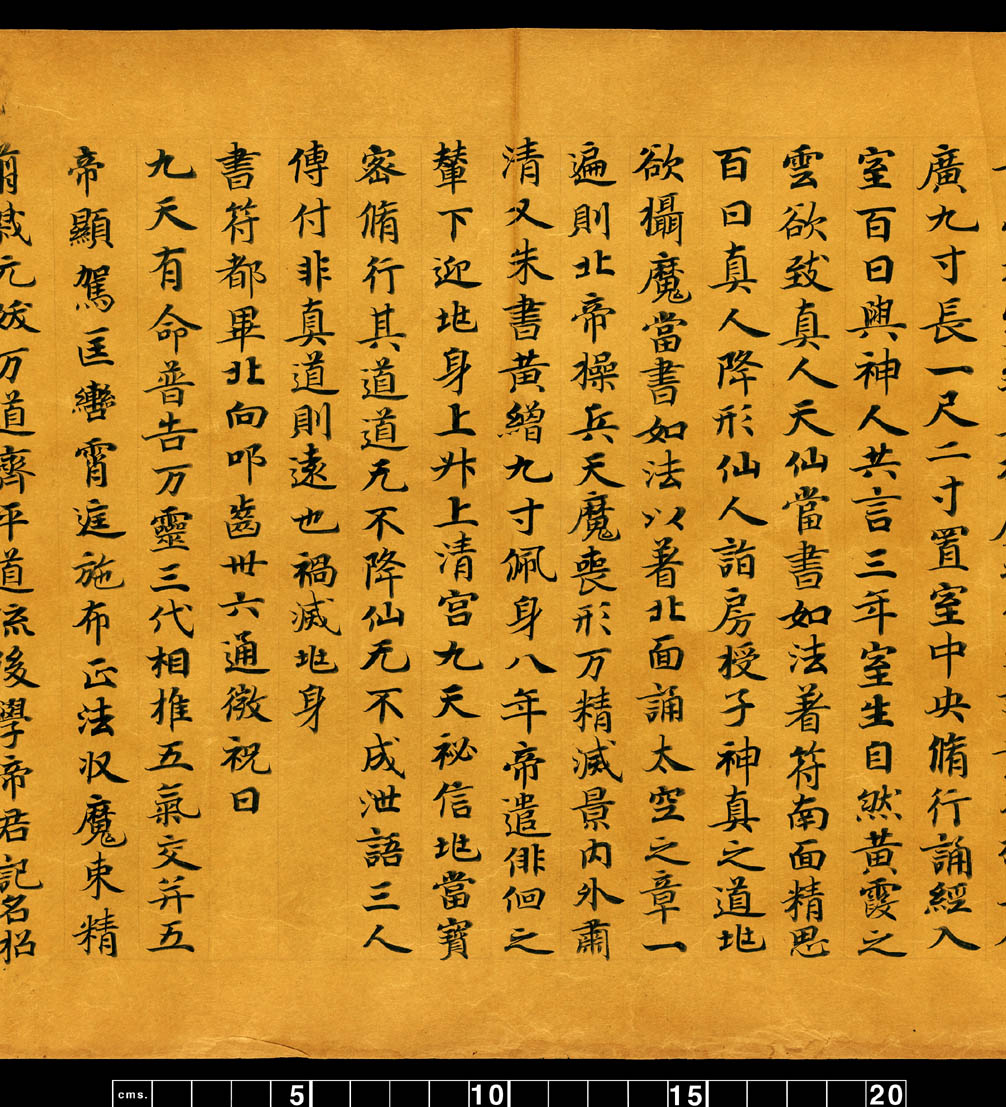 廣九寸長一尺二寸置室中央脩行誦經入
室百日與神人共言三年室生自然黃霞之
雲欲致真人天仙當書如法著符南面精思
百日真人降形仙人詣房授子神真之道地
欲攝魔當書如法以著北面誦太空之章一
遍則北帝操兵天魔喪形万精滅景內外肅
清又朱書黃繒九寸佩身八年帝遣俳佪之
輦下迎地身上升上清宮九天祕信地當寶
密脩行其道道无不降仙无不成泄語三人
傳付非真道則遠也禍滅地身
書符都畢北向叩齒卅六通微祝曰
九天有命普告万靈三代相推五氣交并五
帝顯駕匡轡霄庭施布正法收魔束精
万道齊平道流後學帝君記名招